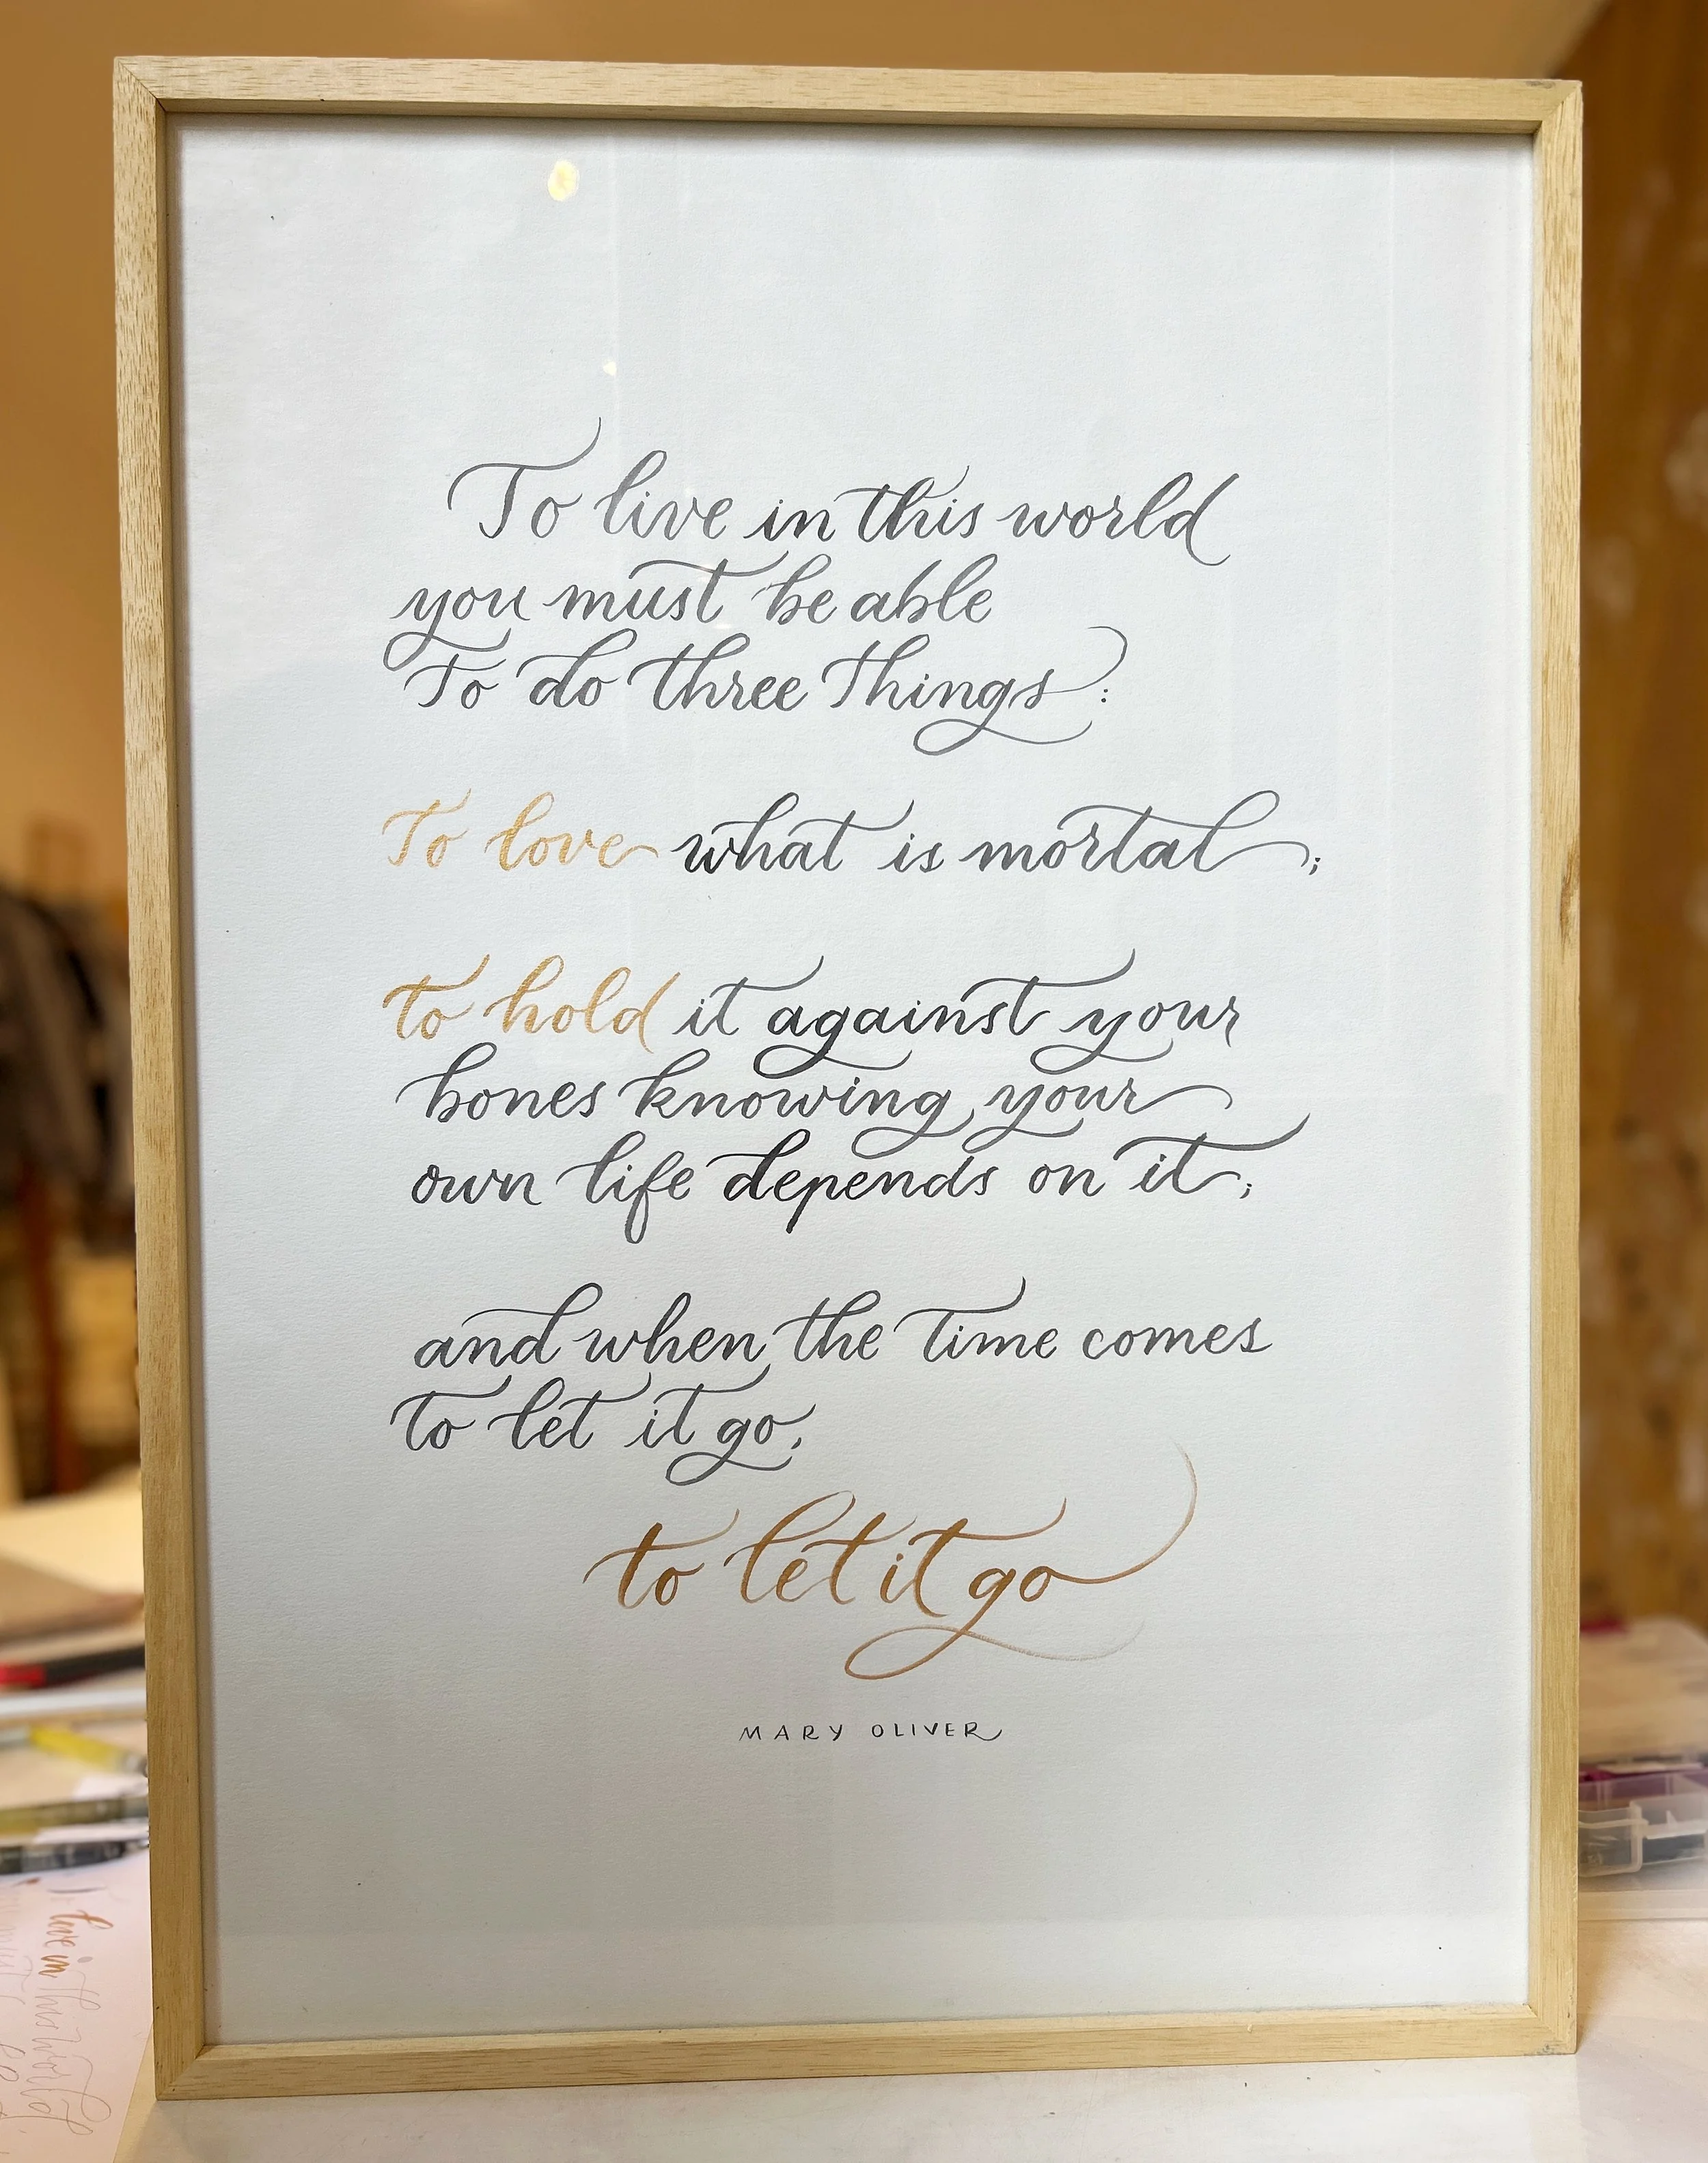 To live in this world
you must be able
To do three Things:
To love what is mortal;
to hold it against your
bones knowing your
own life depends on it;
and when the time comes
to let it go,
to let it go
MARY OLIVER
live in
this world